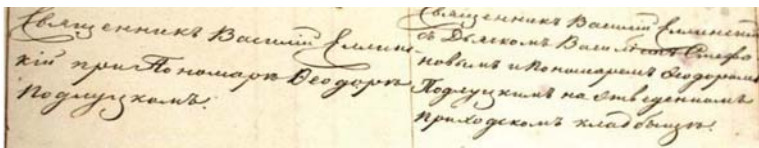 Священникъ Василій Еллин-
кій при Пономарѣ Ѳеодорѣ
Подлуцкомъ.
Священникъ Василій Еллинскій
съ Дьячкомъ Василіемъ Стефа-
новымъ и Пономаремъ Ѳеодоромъ
Подлуцкимъ на отведенномъ
приходскомъ кладбищѣ.